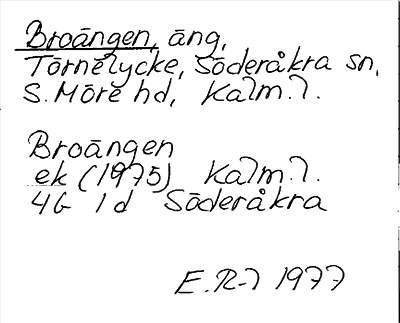 Broängen, äng,
Törnelycke, Söderåkra sn,
S. Möre hd, Kalm. l.
Broängen
ek (1975) Kalm. l.
4G 1d Söderåkra
E.R-l 1977